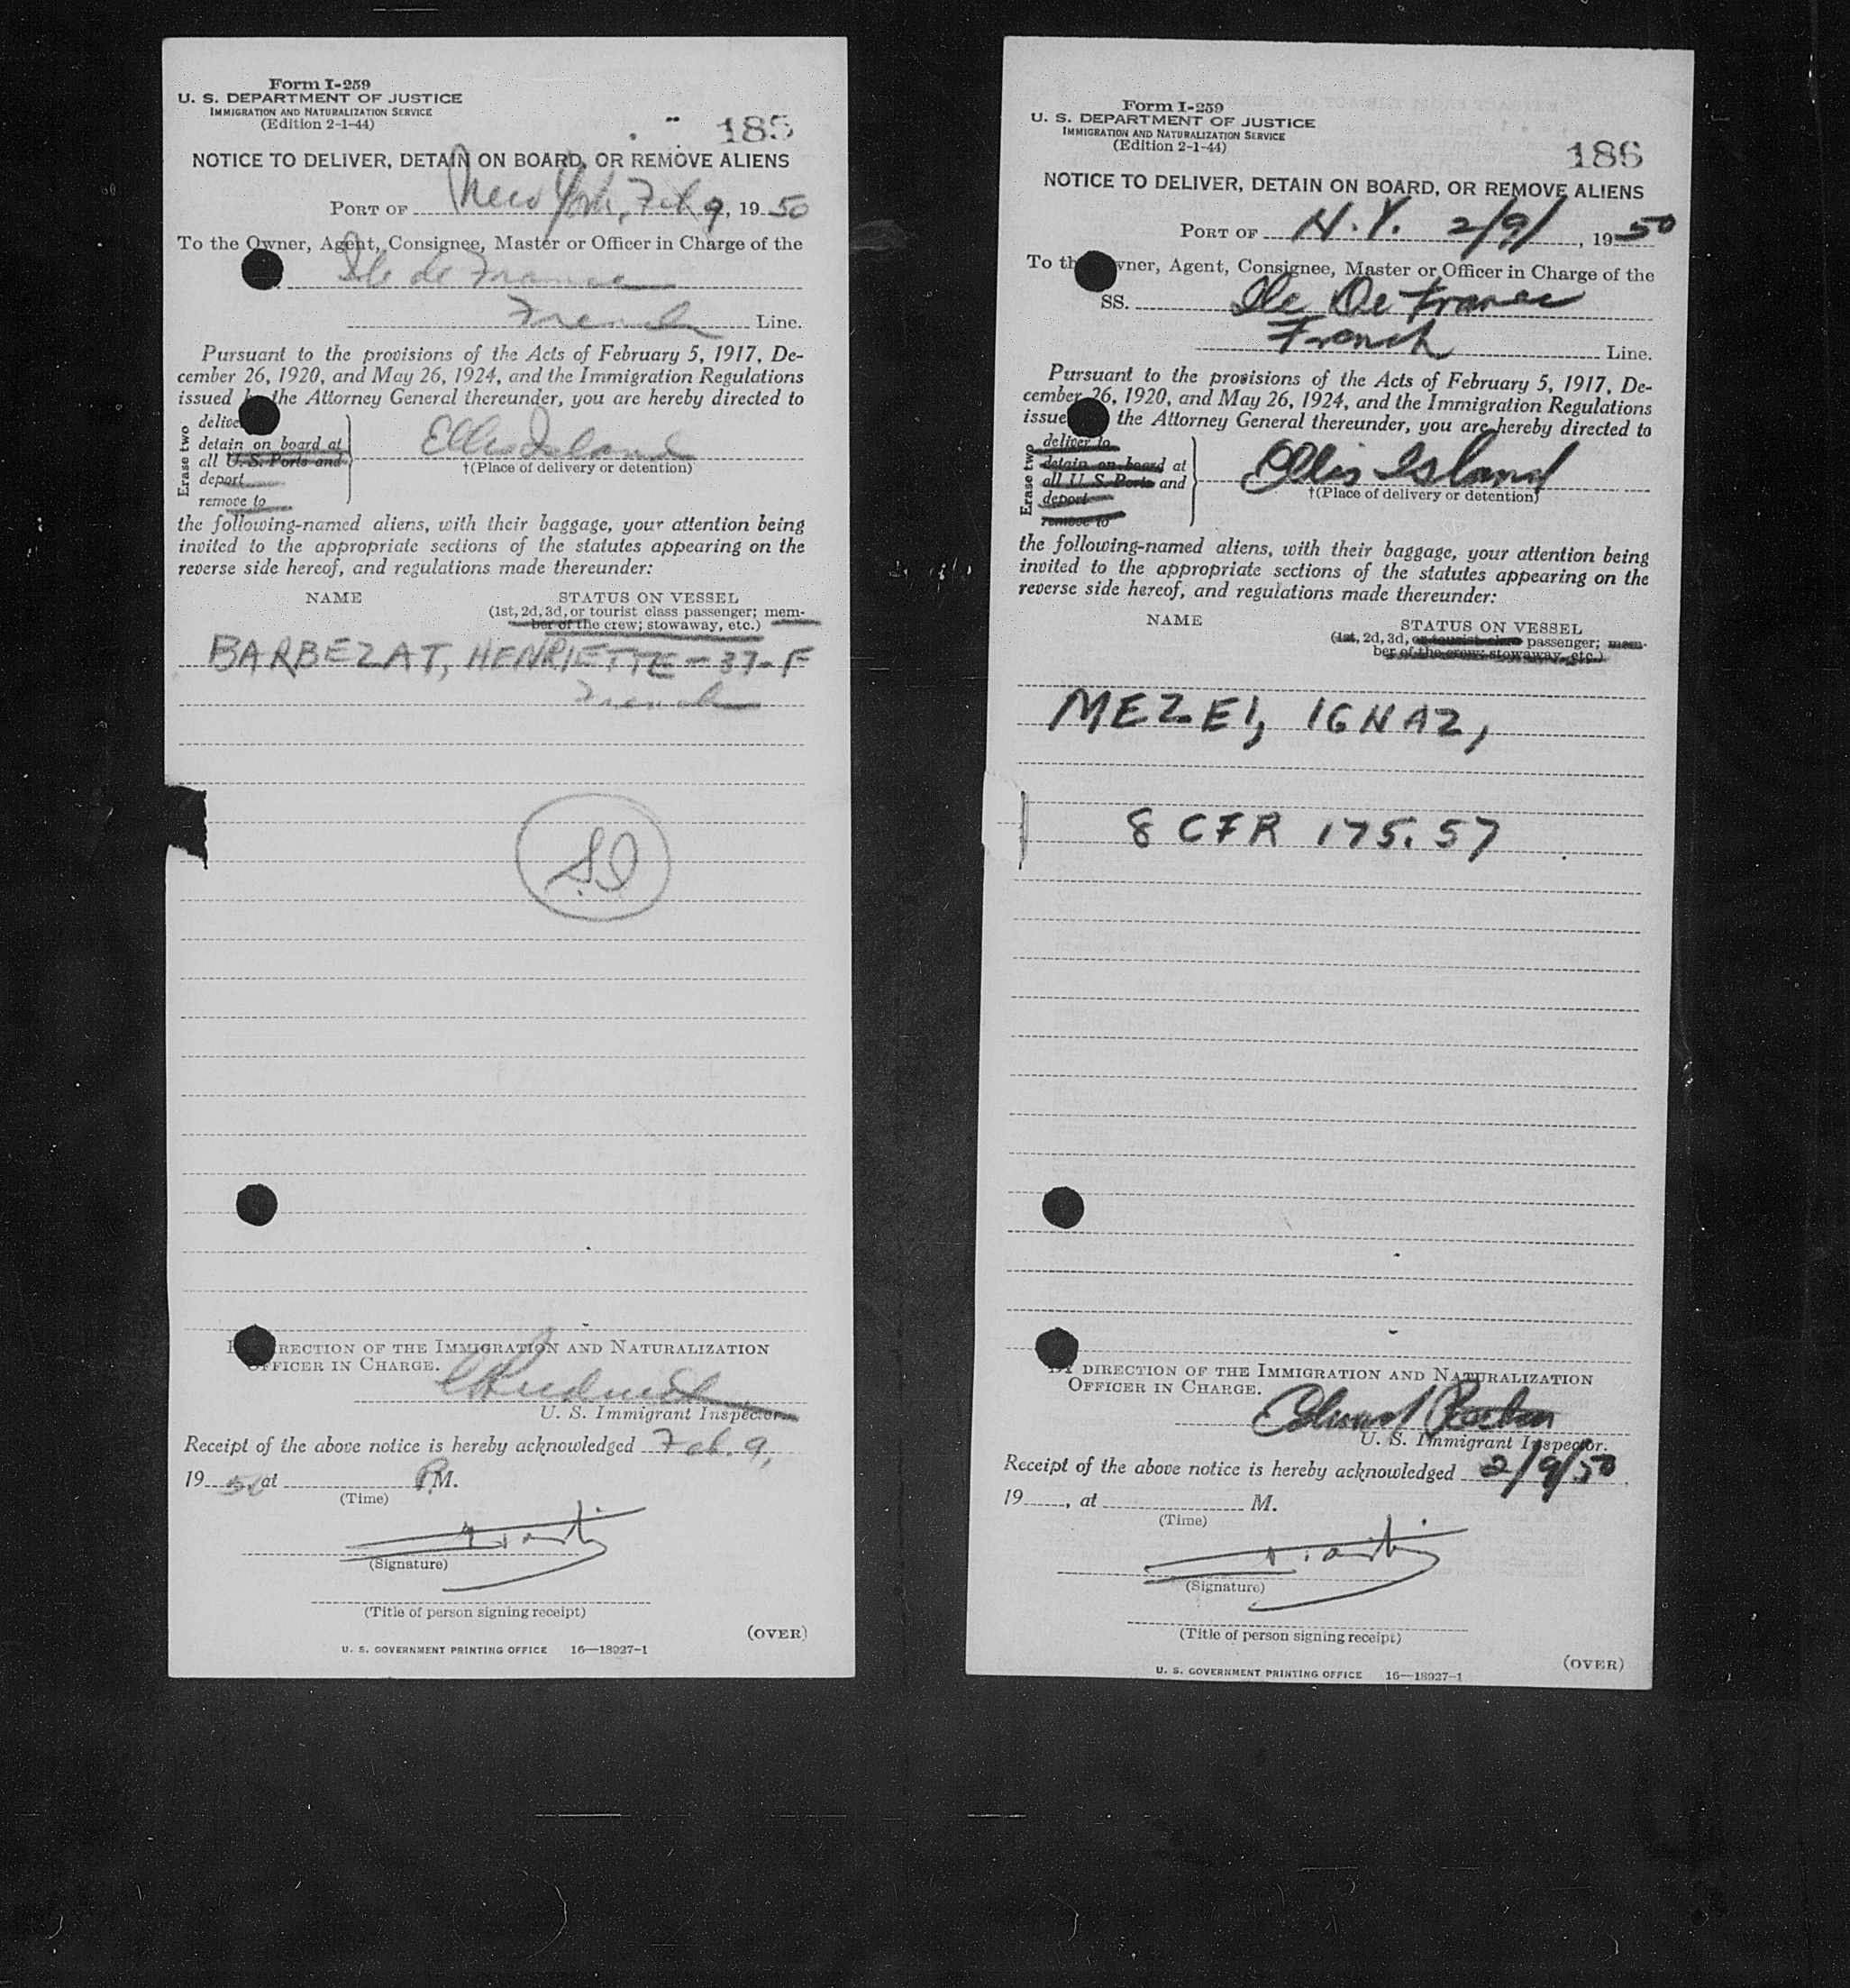 Form I-259
U. S. DEPARTMENT OF JUSTICE
IMMIGRATION AND NATURALIZATION SERVICE
(Edition 2-1-44)
185
NOTICE TO DELIVER, DETAIN ON BOARD, OR REMOVE ALIENS
PORT OF New York, Feb 9, 19 50
To the Owner, Agent, Consignee, Master or Officer in Charge of the
Ile de France
French Line.
Pursuant to the provisions of the Acts of February 5, 1917, De-
cember 26, 1920, and May 26, 1924, and the Immigration Regulations
issued by the Attorney General thereunder, you are hereby directed to
Erase two
delive
detain on board at
all U. S. Ports and
deport
remove to
Ellis Island
†(Place of delivery or detention)
the following-named aliens, with their baggage, your attention being
invited to the appropriate sections of the statutes appearing on the
reverse side hereof, and regulations made thereunder:
NAME STATUS ON VESSEL
(1st, 2d, 3d, or tourist class passenger; mem-
ber of the crew; stowaway, etc.)
BARBEZAT, HENRIETTE - 37 - F
French
SI
RECTION OF THE IMMIGRATION AND NATURALIZATION
OFFICER IN CHARGE.
U. S. Immigrant Inspector
Receipt of the above notice is hereby acknowledged Feb. 9,
19 50 at P.M.
(Time)
(Signature)
(Title of person signing receipt)
(OVER)
U. S. GOVERNMENT PRINTING OFFICE 16—18927-1
Form I-259
U. S. DEPARTMENT OF JUSTICE
IMMIGRATION AND NATURALIZATION SERVICE
(Edition 2-1-44)
186
NOTICE TO DELIVER, DETAIN ON BOARD, OR REMOVE ALIENS
PORT OF N.Y. 2/9/, 19 50
To th wner, Agent, Consignee, Master or Officer in Charge of the
SS. Ile De France
French Line.
Pursuant to the provisions of the Acts of February 5, 1917, De-
cember 26, 1920, and May 26, 1924, and the Immigration Regulations
issue the Attorney General thereunder, you are hereby directed to
Erase two
deliver to
detain on board at
all U. S. Ports and
deport
remove to
Ellis Island
†(Place of delivery or detention)
the following-named aliens, with their baggage, your attention being
invited to the appropriate sections of the statutes appearing on the
reverse side hereof, and regulations made thereunder:
NAME STATUS ON VESSEL
(1st, 2d, 3d, or tourist class passenger; mem-
ber of the crew; stowaway, etc.)
MEZEI, IGNAZ,
8 CFR 175.57
BY DIRECTION OF THE IMMIGRATION AND NATURALIZATION
OFFICER IN CHARGE.
Edward
U. S. Immigrant Inspector.
Receipt of the above notice is hereby acknowledged 2/9/50
19 , at M.
(Time)
(Signature)
(Title of person signing receipt)
(OVER)
U. S. GOVERNMENT PRINTING OFFICE 16—18927-1